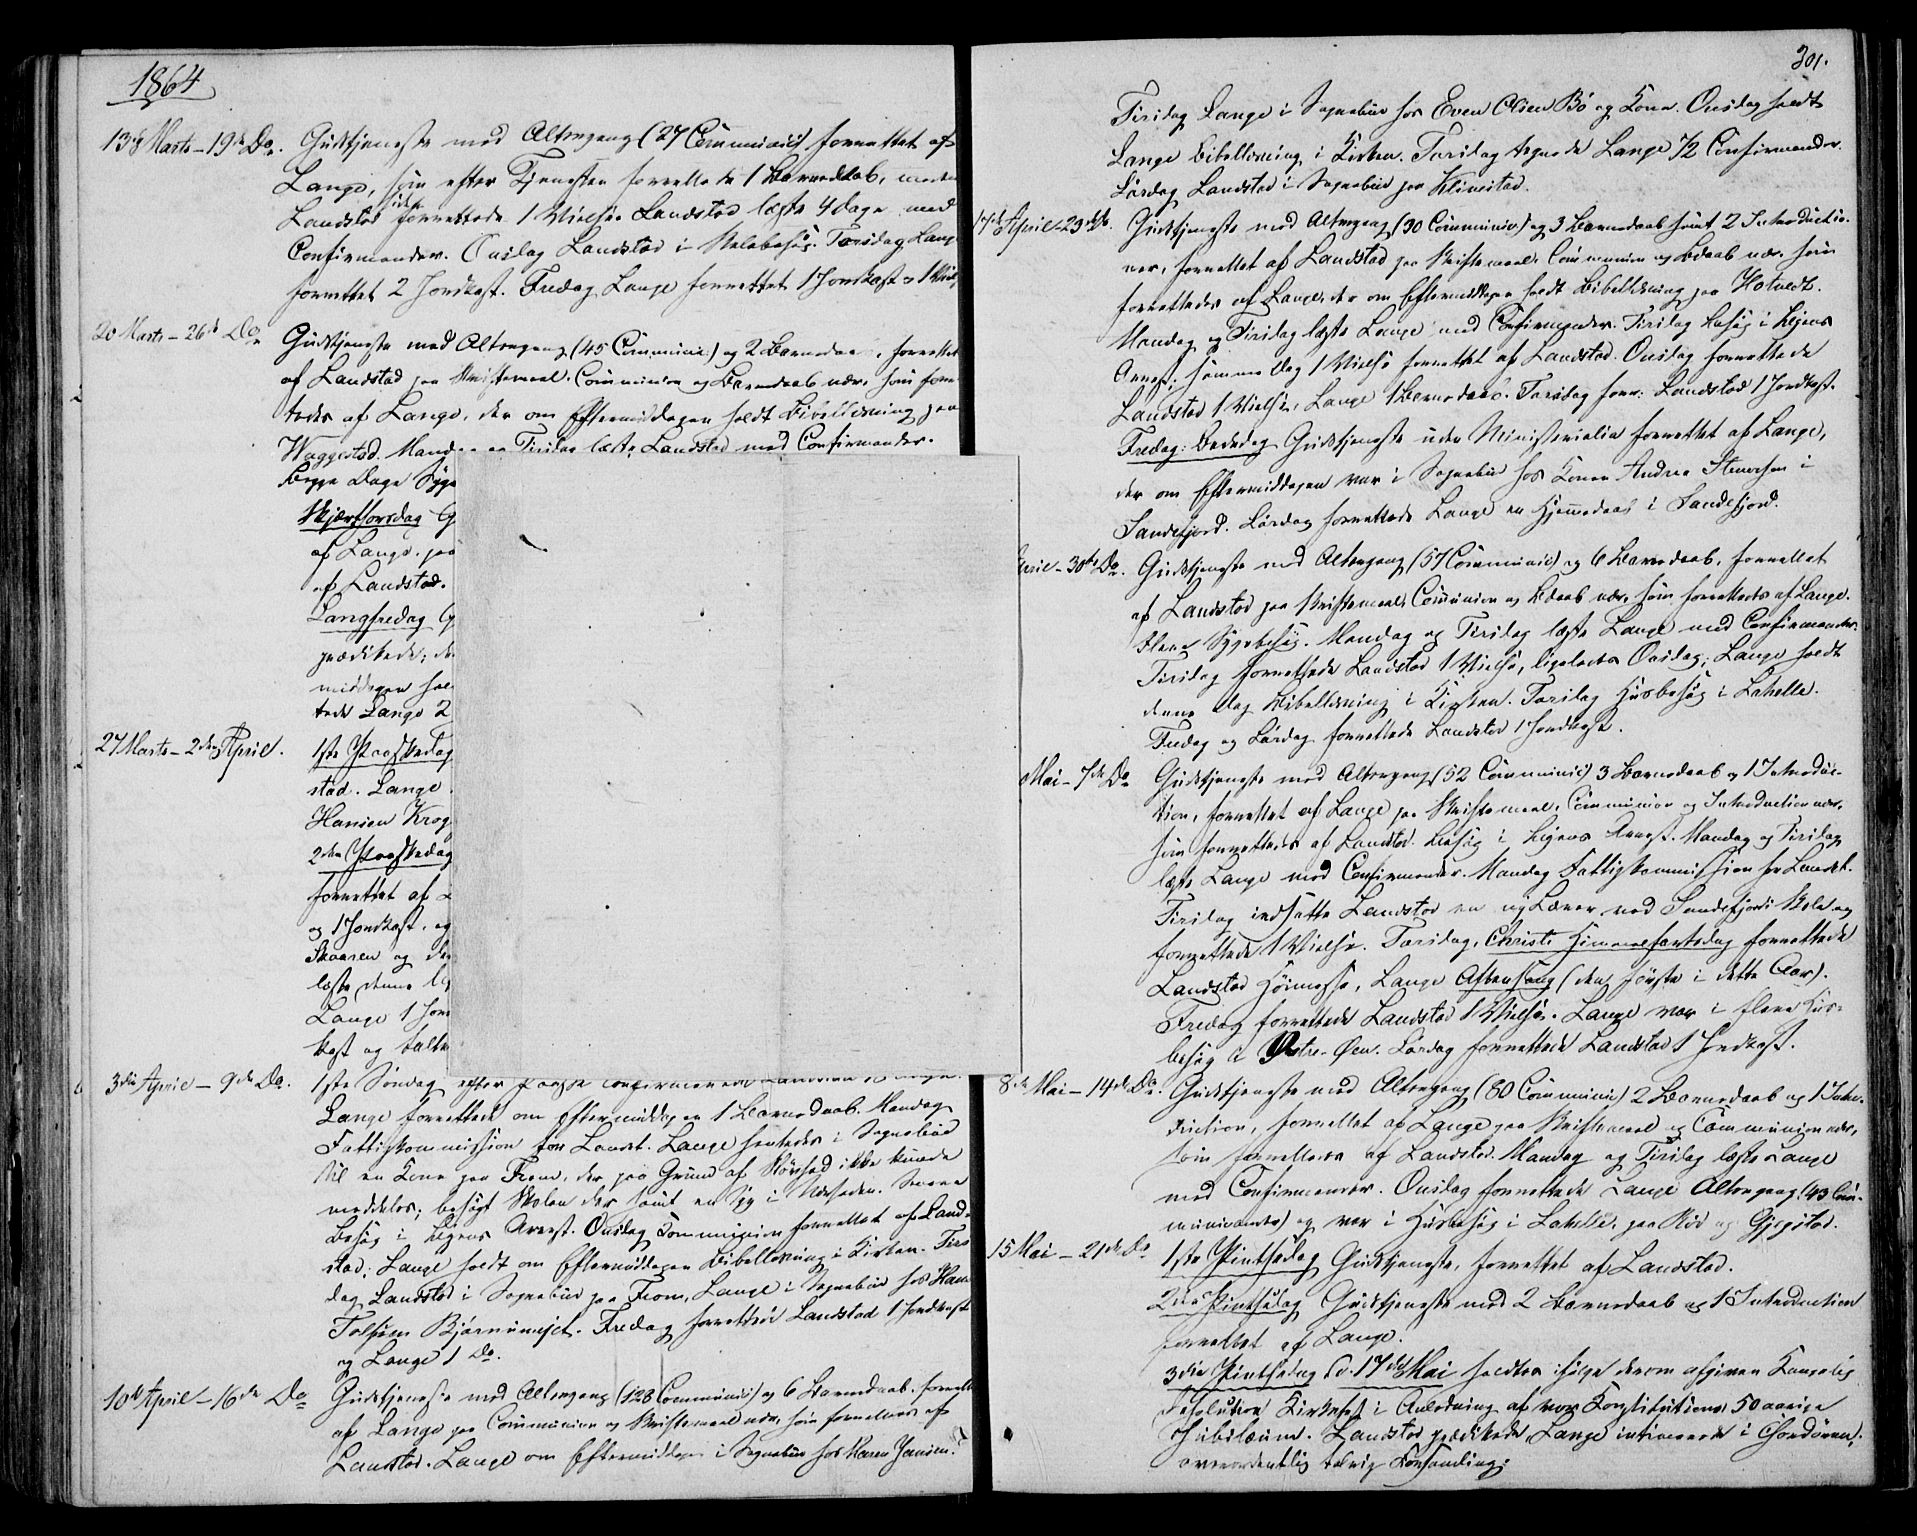 1864
13de Marts – 19de Do. Gudstjeneste med Altergang (27 Communic:) forrettet af
Lange, som efter Tjenesten forrettede 1 Barnedaab, meden
Landstad forrettede 1 Vielse. Landstad læste 4 Dage med
Confirmander. Onsdag Landstad i Skolebesøg. Torsdag Lange
forrettet 2 Jordkast. Fredag Lange forrettet 1 Jordkast o 1 Viels
20 Marts – 26de Do. Gudstjeneste med Altergang (45 Communic:) og 2 Barnedaab, forrettet
af Landstad paa Skriftemaal, Communion og Barnedaab nær, som forret-
tedes af Lange, der om Eftermiddagen holdt Bibellæsning paa
Waggestad. Mandag og Tirsdag læste Landstad med Confirmander.
Begge Dage Syge
Skjærthorsdag G
af Lange, paa
af Landstad.
Langfredag G
prædikede; de
middagen hol
tede Lange 2
27 Marts – 2den April. 1ste Paaskedag
stad. Lange
Hansen Krog
2den Paaskedag
forrettet af
og 1 Jordkast, og
Skaaren og de
læste denne
Lange 1 Jor
kast og
3die April – 9de Do. 1ste Søndag efter Paaske confirmerede Landstad
Lange forrettede om Eftermiddagen 1 Barnedaab. Mandag
Fattigkommission for Landst. Lange hentedes i Sognebud
til en Kone paa Fram, der paa Grund af Døvhed ikke kunde
meddeles; besøgt Skolen der samt en Syg i Nærheden. Senere
Besøg i Byens Arrest. Onsdag Communion forrettet af Land-
stad; Lange holdt om Eftermiddagen Bibellæsning i Kirken. Tors-
dag Landstad i Sognebud paa Fram, Lange i Sognebud hos Hans
Tolfsen Bjørnumejet. Fredag forrettede Landstad 1 Jordkast
og Lange 1 Do.
10de April – 16de Do Gudstjeneste med Altergang (128 Communic:) og 6 Barnedaab, forrettet
af Lange paa Communion og Skriftemaal nær, som forrettedes af
Landstad. Lange om Eftermiddagen i Sognebud hos Karen Jensen.
301.
Tirsdag Lange i Sognebud hos Even Olsen Bø og Kone. Onsdag holdt
Lange Bibellæsning i Kirken. Torsdag tegnede Lange 72 Confirmander.
Lørdag Landstad i Sognebud paa Klinestad.
17de April – 23de Do. Gudstjeneste med Altergang (30 Communic) og 3 Barnedaab samt 2 Introductio-
ner, forrettet af Landstad paa Skriftemaal, Communion og Daab nær, som
forrettedes af Lange, der om Eftermiddagen holdt Bibellæsning paa Hotvedt.
Mandag og Tirsdag læste Lange med Confirmander. Tirsdag Besøg i Byens
Arrest; samme Dag 1 Vielse forrettet af Landstad. Onsdag forrettede
Landstad 1 Vielse, Lange 1 Barnedaab. Torsdag forr: Landstad 1 Jordkast.
Fredag: Bededag Gudstjeneste uden Ministerialia forrettet af Lange,
der om Eftermiddagen var i Sognebud hos Konen Andrea Stenersen i
Sandefjord. Lørdag forrettede Lange en Hjemmedaab i Sandefjord.
April – 30te Do. Gudstjeneste med Altergang (57 Communic) og 6 Barnedaab, forrettet
af Landstad paa Skriftemaal, Communion og Daab nær, som forrettedes af Lange.
Flere Sygebesøg. Mandag og Tirsdag læste Lange med Confirmander.
Tirsdag forrettede Landstad 1 Vielse, ligeledes Onsdag; Lange holdt
denne Dag Bibellæsning i Kirken. Torsdag Husbesøg i Lahelle.
Fredag og Lørdag forrettede Landstad 1 Jordkast.
Mai – 7de Do Gudstjeneste med Altergang (52 Communic) 3 Barnedaab o 1 Introduc-
tion, forrettet af Lange paa Skriftemaal, Communion og Introduction nær,
som forrettedes af Landstad. Besøg i Byens Arrest. Mandag og Tirsdag
læste Lange med Confirmander. Mandag Fattigkommission for Landst.
Tirsdag indsatte Landstad en ny Lærer ved Sandefjords Skole og
forrettede 1 Vielse. Torsdag, Christi Himmelfartsdag forrettede
Landstad Høimesse, Lange Aftensang (den første i dette Aar).
Fredag forrettede Landstad 1 Vielse. Lange var i flere Hus-
besøg a Østre-Øen. Lørdag forrettede Landstad 1 Jordkast.
8de Mai – 14de Do. Gudstjeneste med Altergang (80 Communic) 2 Barnedaab og 1 Intro-
duction, forrettet af Lange paa Skriftemaal og Communion nær,
som forrettedes af Landstad. Mandag og Tirsdag læste Lange
med Confirmander. Onsdag forrettede Lange Altergang (43 Com-
municantes) og var i Husbesøg i Lahelle, paa Rød og Gjogstad.
15 Mai – 21de Do 1ste Pintsedag Gudstjeneste, forrettet af Landstad.
2den Pintsedag Gudstjeneste med 2 Barnedaab og 1 Introduction
forrettet af Lange.
3die Pintsedag d. 17de Mai holdtes ifølge derom afgiven Kongelig
Resolution Kirkefest i Anledning af vor Konstitutions 50 aarige
Jubilæum. Landstad prædikede, Lange intimerede i Chordøren;
overordentlig talrig Forsamling.